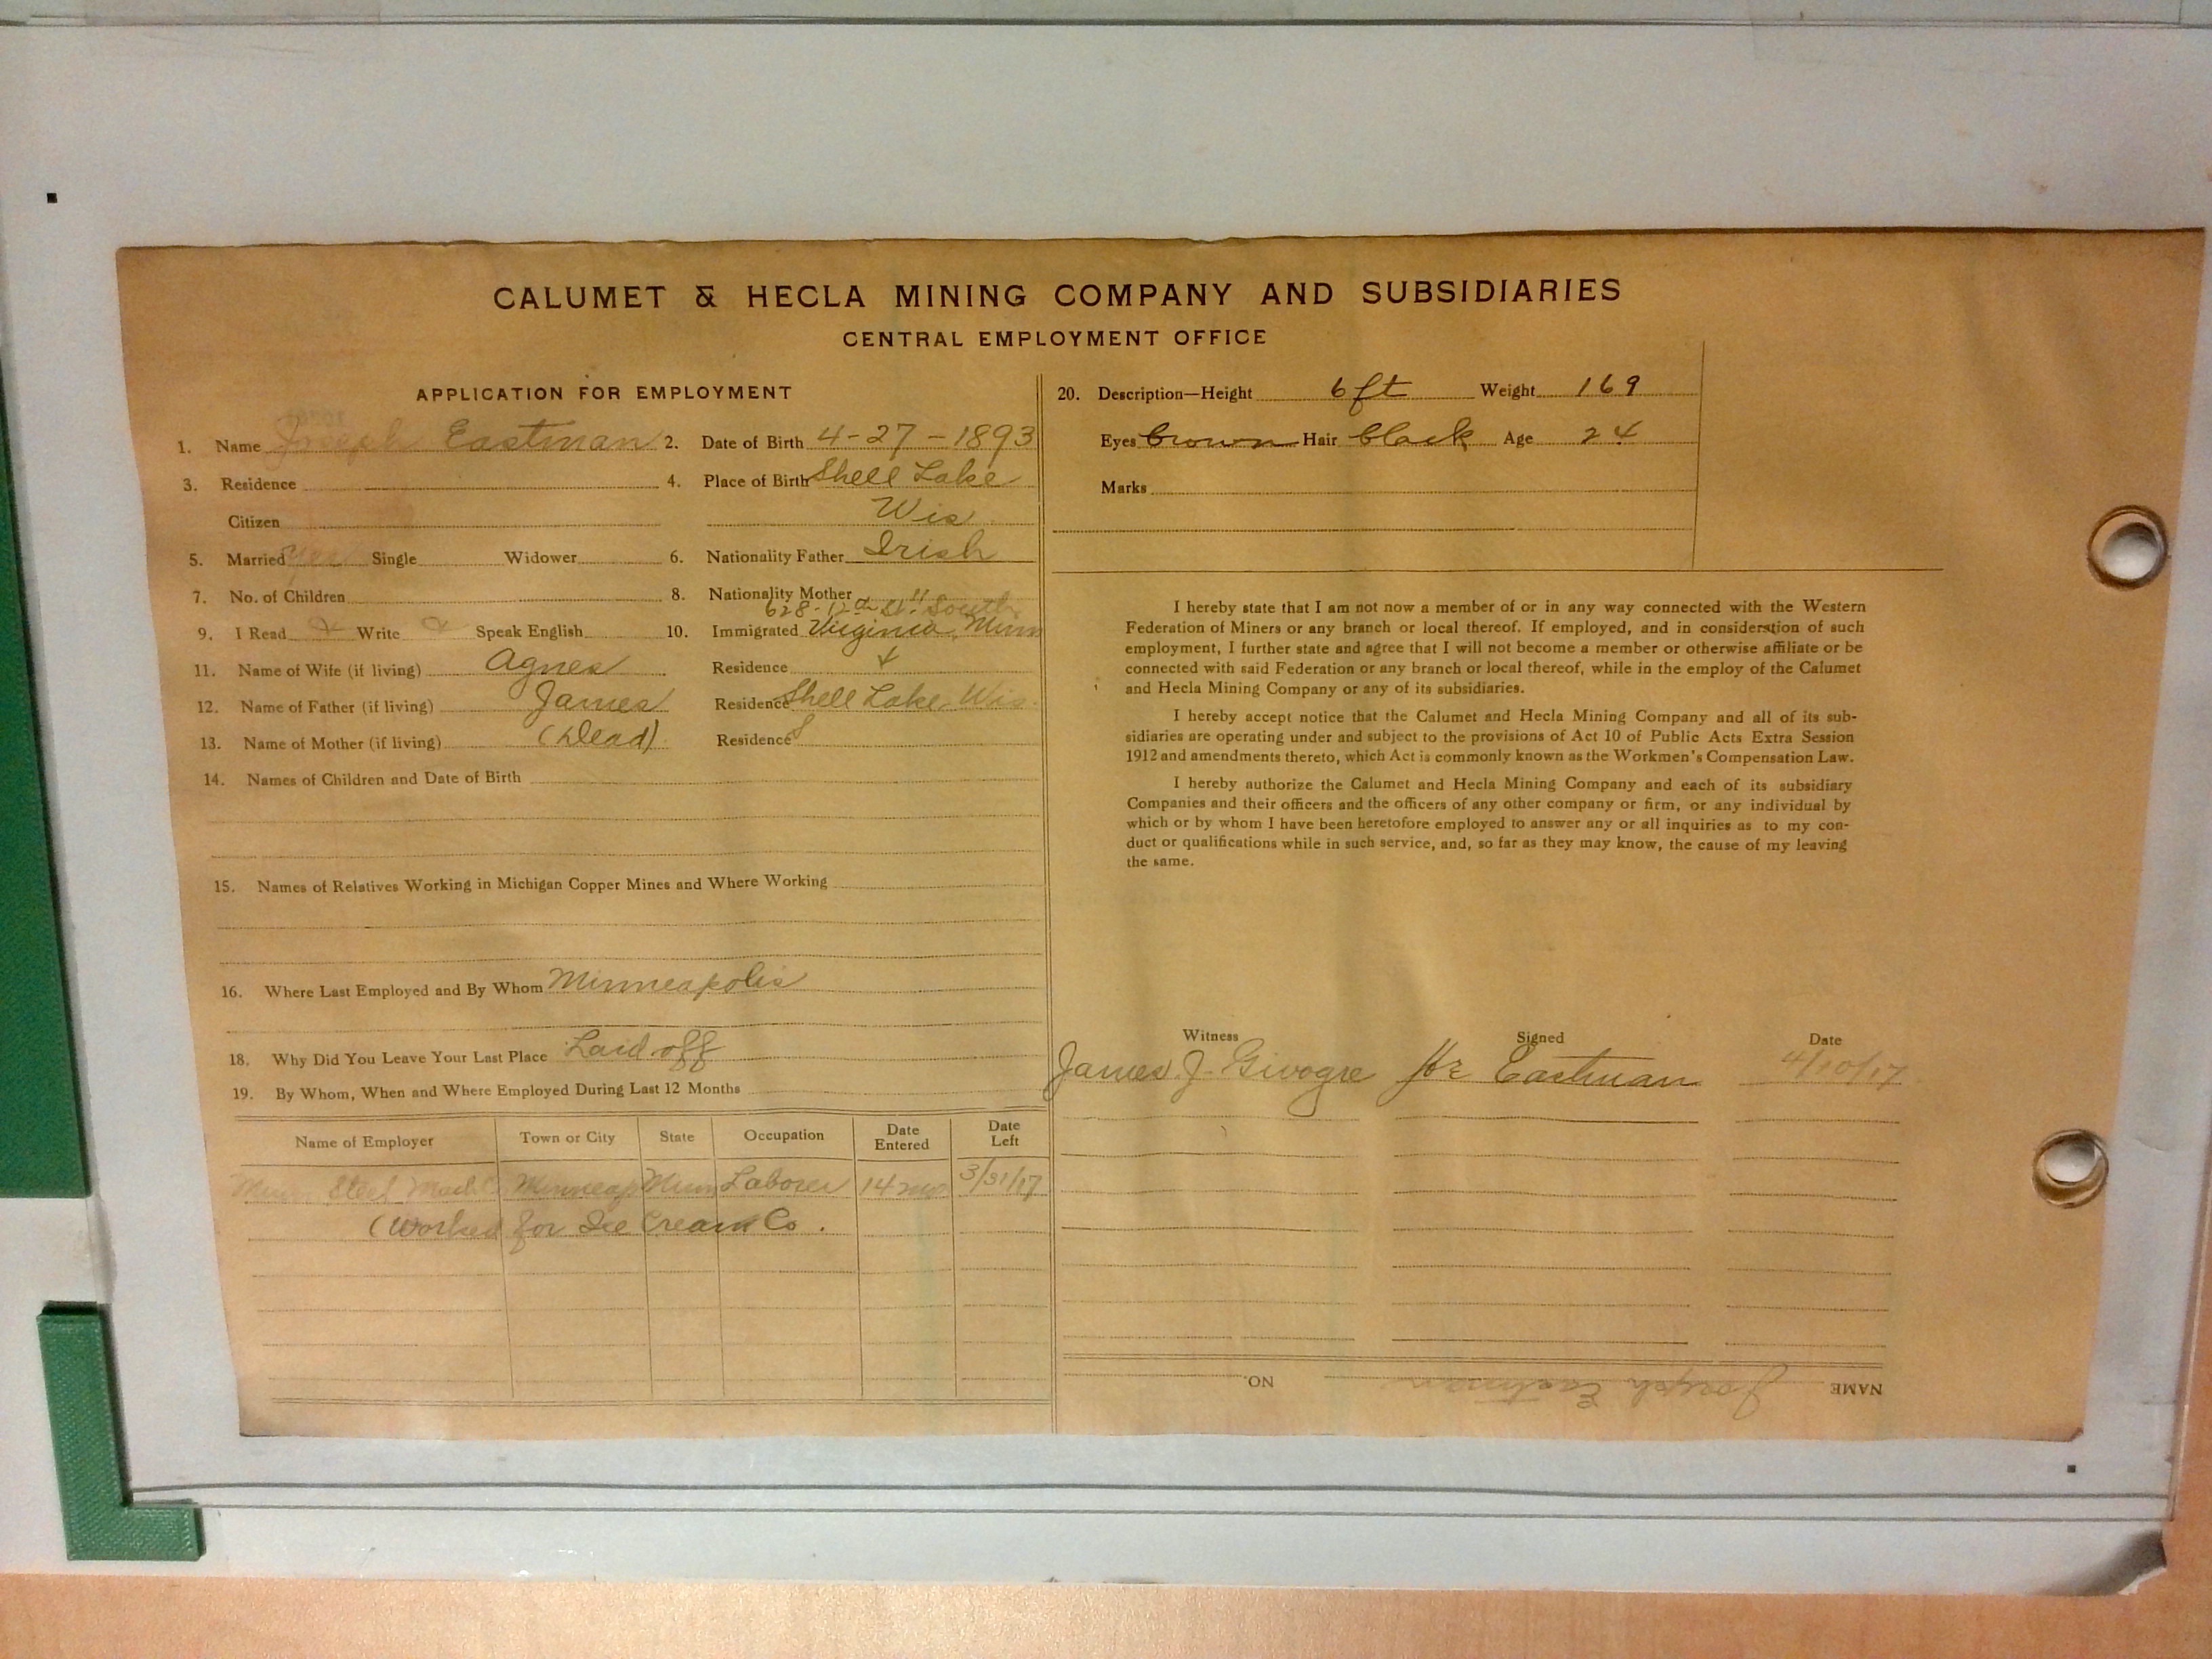 CALUMET & HECLA MINING COMPANY AND SUBSIDIARIES
CENTRAL EMPLOYMENT OFFICE
APPLICATION FOR EMPLOYMENT
1. Name Joseph Eastman 2. Date of Birth 4-27-1893
3. Residence 4. Place of Birth Shell Lake
Citizen Wis
5. Married yes Single Widower 6. Nationality Father Irish
7. No. of Children 8. Nationality Mother "
628-12th St South
9. I Read Write Speak English 10. Immigrated Virginia, Minn
11. Name of Wife (if living) Agnes Residence
12. Name of Father (if living) James Residence Shell Lake, Wis
13. Name of Mother (if living) (Dead) Residence
14. Names of Children and Date of Birth
15. Names of Relatives Working in Michigan Copper Mines and Where Working
16. Where Last Employed and By Whom Minneapolis
18. Why Did You Leave Your Last Place Laid off
19. By Whom, When and Where Employed During Last 12 Months
Name of Employer Town or City State Occupation Date Entered Date Left
Steel Minneap Minn Laborer 14 mo 3/31/17
(Worked for Ice Cream Co.
20. Description—Height 6 ft Weight 169
Eyes brown Hair black Age 24
Marks
I hereby state that I am not now a member of or in any way connected with the Western
Federation of Miners or any branch or local thereof. If employed, and in consideration of such
employment, I further state and agree that I will not become a member or otherwise affiliate or be
connected with said Federation or any branch or local thereof, while in the employ of the Calumet
and Hecla Mining Company or any of its subsidiaries.
I hereby accept notice that the Calumet and Hecla Mining Company and all of its sub-
sidiaries are operating under and subject to the provisions of Act 10 of Public Acts Extra Session
1912 and amendments thereto, which Act is commonly known as the Workmen's Compensation Law.
I hereby authorize the Calumet and Hecla Mining Company and each of its subsidiary
Companies and their officers and the officers of any other company or firm, or any individual by
which or by whom I have been heretofore employed to answer any or all inquiries as to my con-
duct or qualifications while in such service, and, so far as they may know, the cause of my leaving
the same.
Witness Signed Date
James J. Eastman 4/10/17
NAME Joseph Eastman NO.